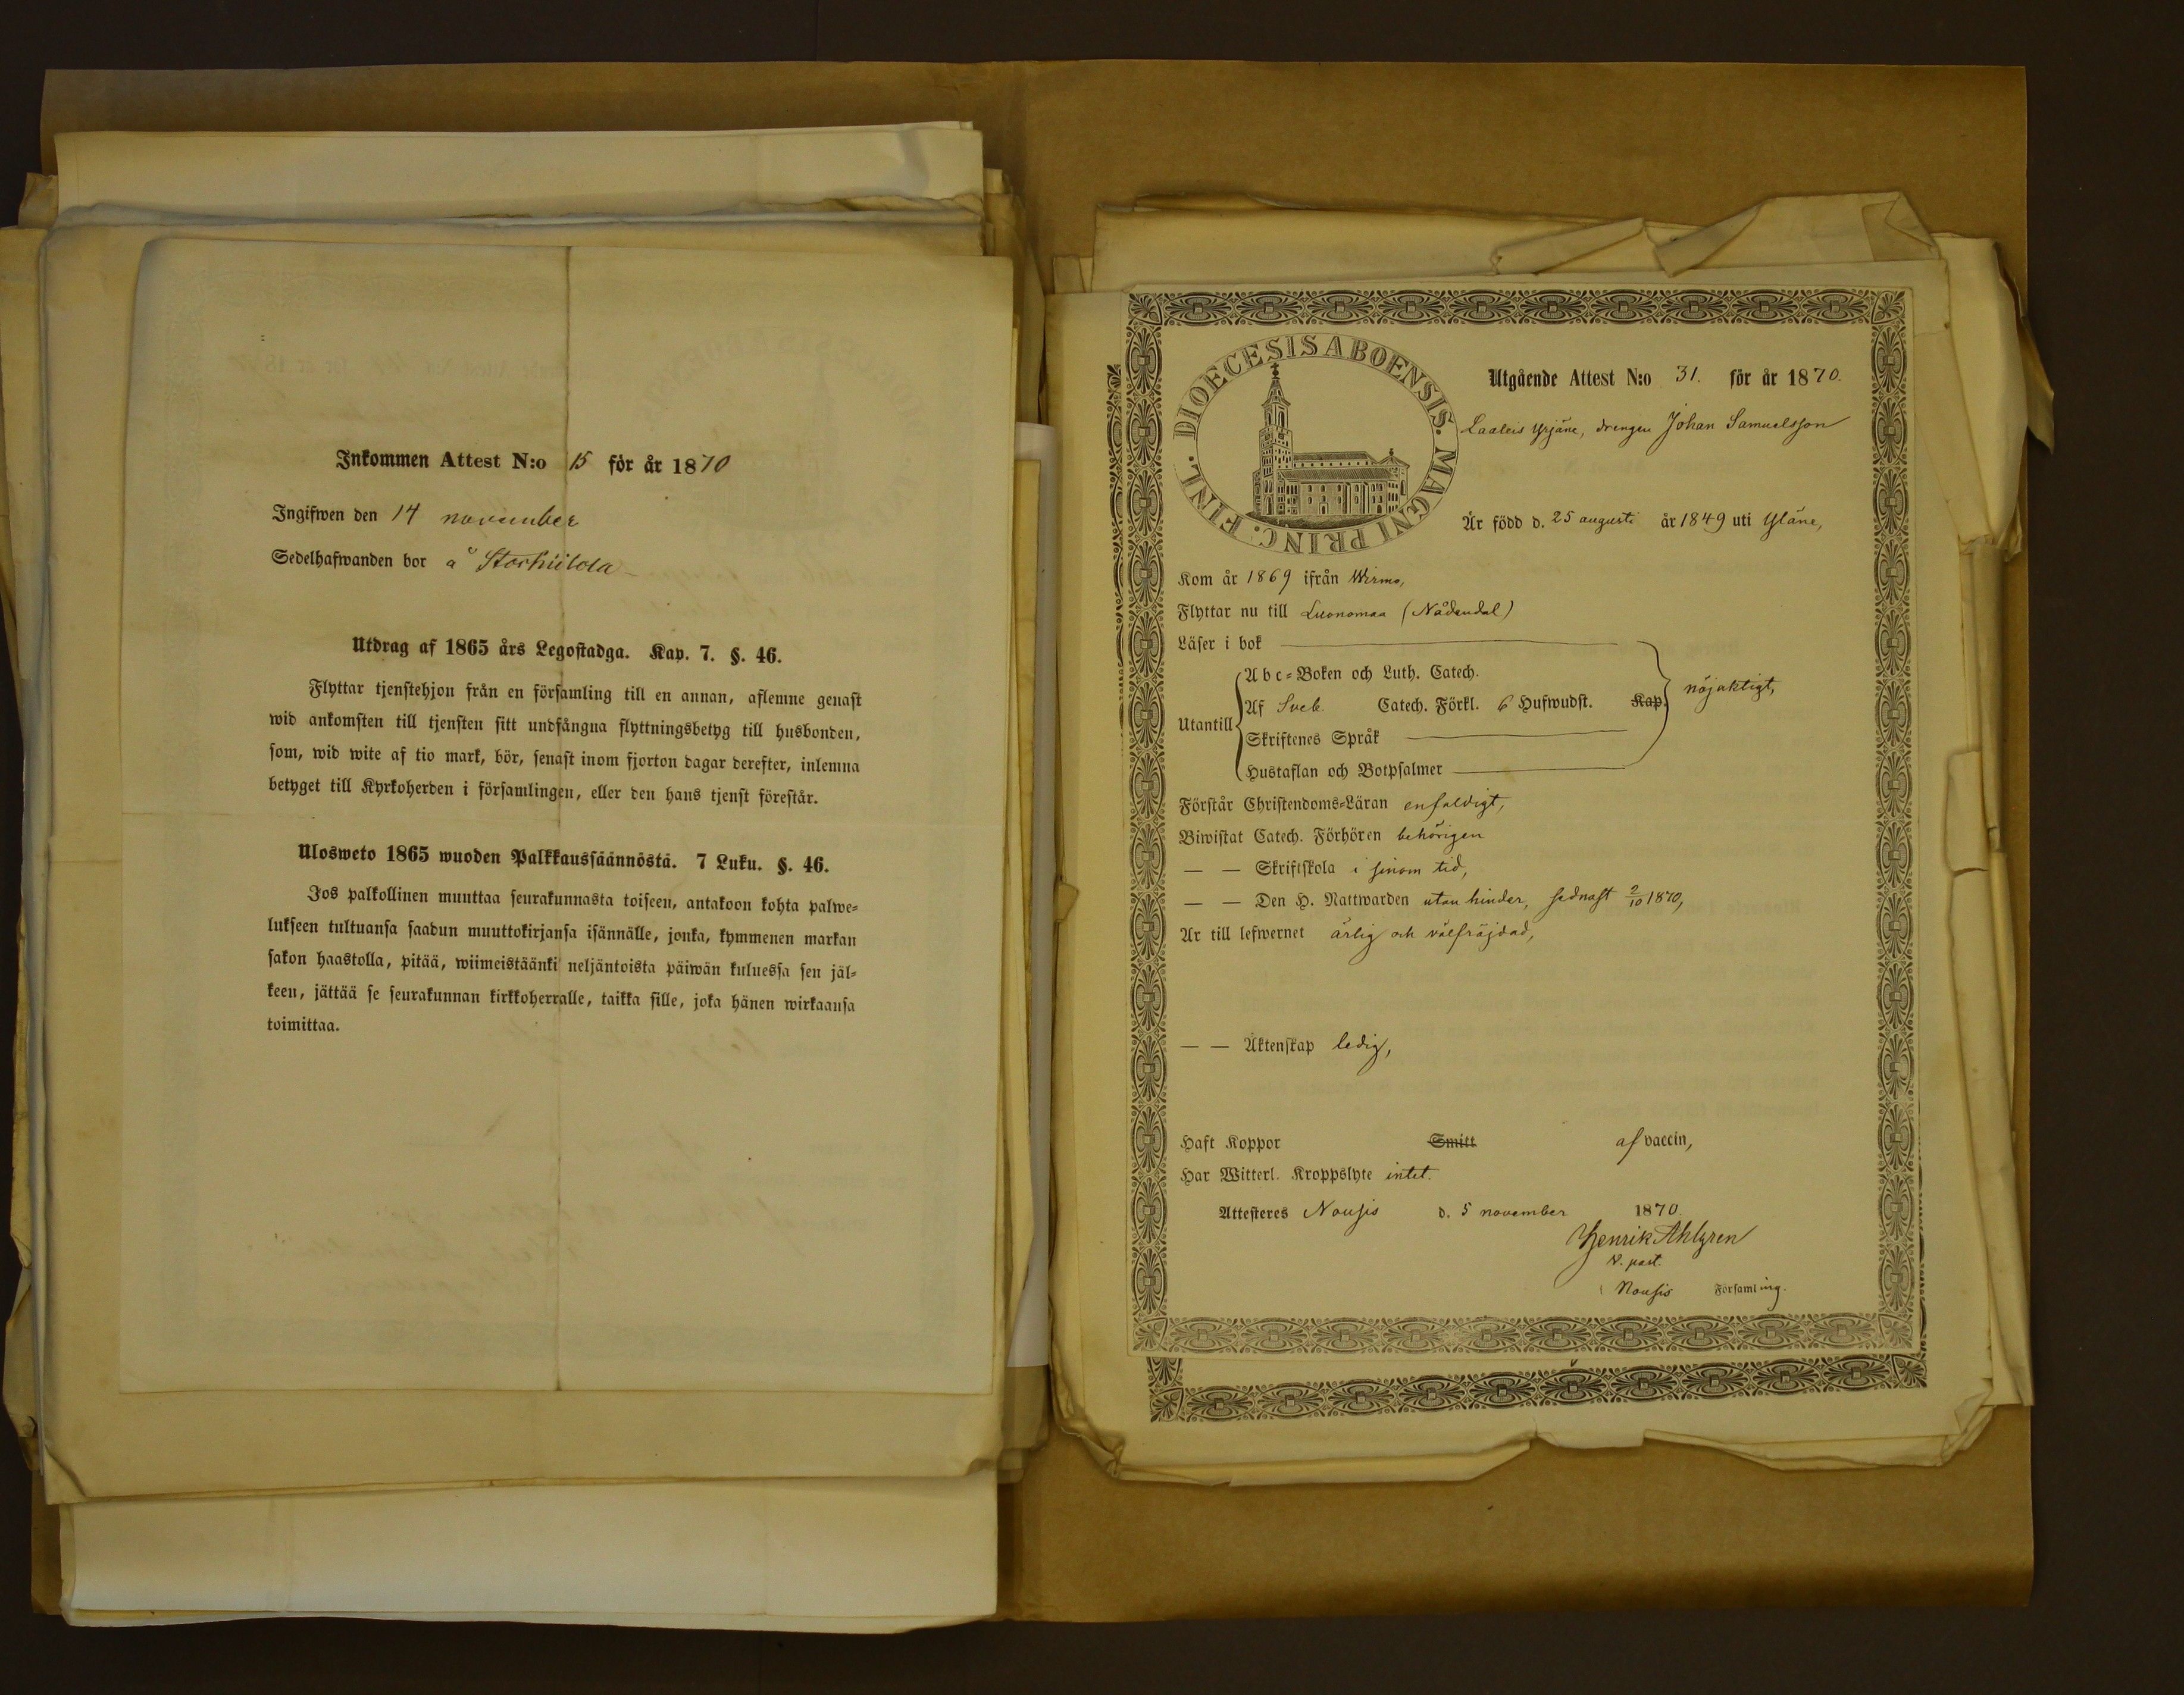 Inkommen Attest N:o 15 för år 1870
Ingifwen den 14 november
Sedelhafwanden bor å Storkiilola
Utdrag af 1865 års Legostadga. Kap. 7. §. 46.
Flyttar tjenstehjon från en församling till en annan, aflemne genast
wid ankomsten till tjensten sitt undfångna flyttningsbetyg till husbonden,
som, wid wite af tio mark, bör, senast inom fjorton dagar derefter, inlemna
betyget till Kyrkoherden i församlingen, eller den hans tjenst förestår.
Ulosweto 1865 wuoden Palkkaussäännöstä. 7 Luku. §. 46.
Jos palkollinen muuttaa seurakunnasta toiseen, antakoon kohta palwe-
lukseen tultuansa saadun muuttokirjansa isännälle, jonka, kymmenen markan
sakon haastolla, pitää, wiimeistäänki neljäntoista päiwän kuluessa sen jäl-
keen, jättää se seurakunnan kirkkoherralle, taikka sille, joka hänen wirkaansa
toimittaa.
DIOECESIS ABOENSIS. MAGNI PRINC: FINL.
Utgående Attest N:o 31. för år 1870.
Laaleis Yrjäne, drengen Johan Samuelsson
Är född d. 25 augusti år 1849 uti Yläne,
Kom år 1869 ifrån Wirmo,
Flyttar nu till Luonomaa (Nådendal)
Läser i bok
Abc-Boken och Luth. Catech.
Utantill Af Sveb. Catech. Förkl. 6 Hufwudst. Kap. nöjaktigt,
Skriftenes Språk
Hustaflan och Botpsalmer
Förstår Christendoms-Läran enfaldigt,
Biwistat Catech. Förhören behörigen
— — Skriftskola i sinom tid,
— — Den H. Nattwarden utan hinder, sednast 2/10 1870,
Är till lefwernet ärlig och välfräjdad,
— — Äktenskap ledig,
Haft Koppor Smitt af vaccin,
Har Witterl. Kroppslyte intet.
Attesteres Nousis d. 5 november 1870.
Henrik Ahlgren
v. past.
i Nousis Församling.